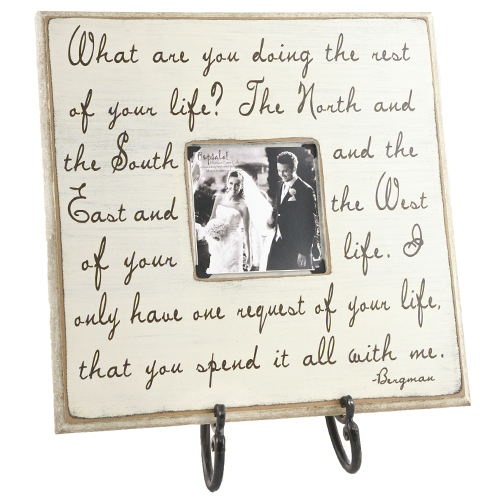 What are you doing the rest
of your life? The North and
the South and the
East and the West
of your life. I
only have one request of your life,
that you spend it all with me.
-Bergman